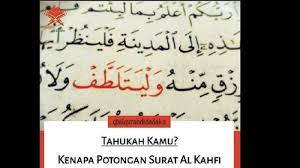 رَبُّكُمْ أَعْلَمُ بِمَا لَبِثْتُمْ
إِلَى الْمَدِينَةِ فَلْيَنظُرْ أَيُّهَا
زْقٍ مِّنْهُ وَلْيَتَلَطَّفْ وَلَا
TAHUKAH KAMU?
KENAPA POTONGAN SURAT AL KAHFI